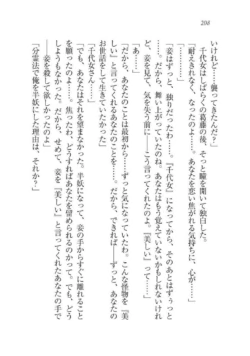 208
いけれど……襲ってきたんだ？」
千代女はしばらくの葛藤の後、そっと瞳を開いて独白した。
「耐えきれなく、なったのよ。あなたを恋い焦がれる気持ちに、心が……」
「…………」
「妾はずっと、独りだったわ……。『千代女』になってから、そのあとはずぅっと
……。舞い上がっていたのね。あなたはもう覚えていないかもしれないけれ
ど、妾を見て、気を失う前に……こう言ってくれたのよ。『美しい』って──」
「あ……」
「だから、あなたのことは最初から……ずっと気になっていたわ。こんな怪物を『美
しい』って言ってくれたあなたを……。だから、できれば……ずっと、あなたの
お世話をして生きていたかった」
「千代女さん……」
「でも、あなたはそれを望まなかった。半妖になって、妾の手からすぐに離れること
を望んだのよ。焦ったわ、どうすればあなたを留められるのかって。でも、どうし
ようもなかった……。だから、せめて、妾を『美しい』と言ってくれたあなたの手で
──妾を殺して欲しかった」
「分霊法で俺を半妖にした理由は、それか？」